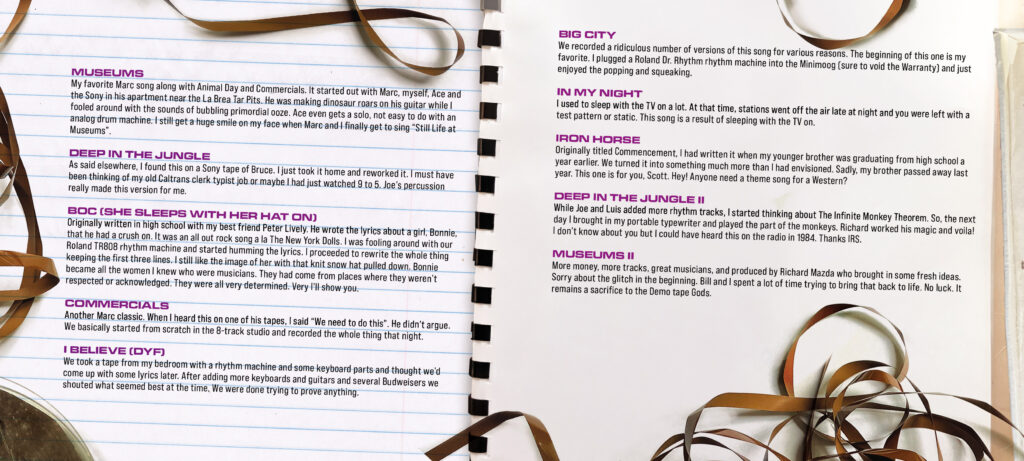 MUSEUMS
My favorite Marc song along with Animal Day and Commercials. It started out with Marc, myself, Ace and
the Sony in his apartment near the La Brea Tar Pits. He was making dinosaur roars on his guitar while I
fooled around with the sounds of bubbling primordial ooze. Ace even gets a solo, not easy to do with an
analog drum machine. I still get a huge smile on my face when Marc and I finally get to sing “Still Life at
Museums”.
DEEP IN THE JUNGLE
As said elsewhere, I found this on a Sony tape of Bruce. I just took it home and reworked it. I must have
been thinking of my old Caltrans clerk typist job or maybe I had just watched 9 to 5. Joe’s percussion
really made this version for me.
BOC (SHE SLEEPS WITH HER HAT ON)
Originally written in high school with my best friend Peter Lively. He wrote the lyrics about a girl, Bonnie,
that he had a crush on. It was an all out rock song a la The New York Dolls. I was fooling around with our
Roland TR808 rhythm machine and started humming the lyrics. I proceeded to rewrite the whole thing
keeping the first three lines. I still like the image of her with that knit snow hat pulled down. Bonnie
became all the women I knew who were musicians. They had come from places where they weren’t
respected or acknowledged. They were all very determined. Very I’ll show you.
COMMERCIALS
Another Marc classic. When I heard this on one of his tapes, I said “We need to do this”. He didn’t argue.
We basically started from scratch in the 8-track studio and recorded the whole thing that night.
I BELIEVE (DYF)
We took a tape from my bedroom with a rhythm machine and some keyboard parts and thought we’d
come up with some lyrics later. After adding more keyboards and guitars and several Budweisers we
shouted what seemed best at the time. We were done trying to prove anything.
BIG CITY
We recorded a ridiculous number of versions of this song for various reasons. The beginning of this one is my
favorite. I plugged a Roland Dr. Rhythm rhythm machine into the Minimoog (sure to void the Warranty) and just
enjoyed the popping and squeaking.
IN MY NIGHT
I used to sleep with the TV on a lot. At that time, stations went off the air late at night and you were left with a
test pattern or static. This song is a result of sleeping with the TV on.
IRON HORSE
Originally titled Commencement, I had written it when my younger brother was graduating from high school a
year earlier. We turned it into something much more than I had envisioned. Sadly, my brother passed away last
year. This one is for you, Scott. Hey! Anyone need a theme song for a Western?
DEEP IN THE JUNGLE II
While Joe and Luis added more rhythm tracks, I started thinking about The Infinite Monkey Theorem. So, the next
day I brought in my portable typewriter and played the part of the monkeys. Richard worked his magic and voila!
I don’t know about you but I could have heard this on the radio in 1984. Thanks IRS.
MUSEUMS II
More money, more tracks, great musicians, and produced by Richard Mazda who brought in some fresh ideas.
Sorry about the glitch in the beginning. Bill and I spent a lot of time trying to bring that back to life. No luck. It
remains a sacrifice to the Demo tape Gods.